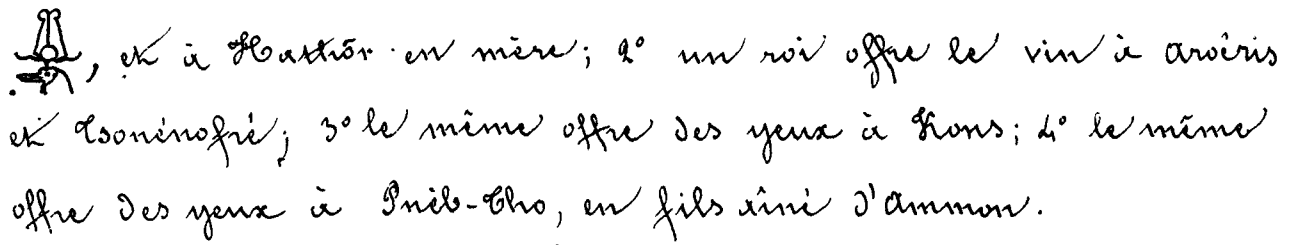 , et à Hathôr en mère; 2° un roi offre le vin à Aroëris
et Tsonénofré; 3° le même offre des yeux à Khons; 4° le même
offre des yeux à Pnèb-Tho, en fils aîné d'Ammon.